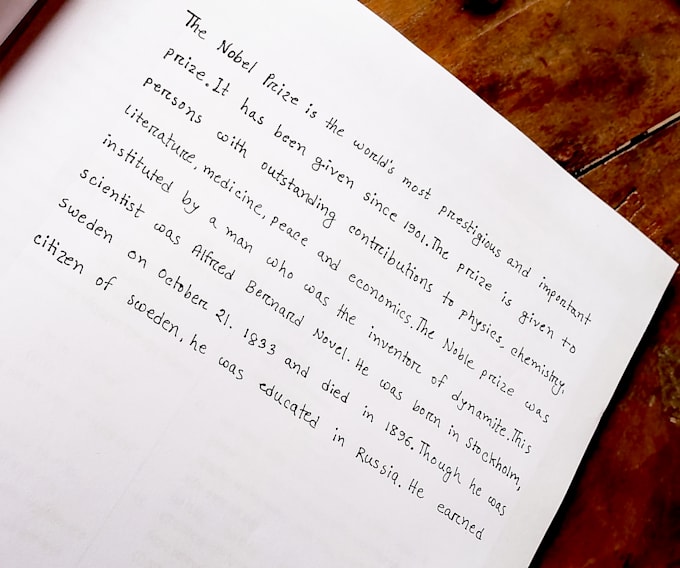 The Nobel Prize is the world's most prestigious and important
prize. It has been given since 1901. The prize is given to
persons with outstanding contributions to physics, chemistry,
literature, medicine, peace and economics. The Noble prize was
instituted by a man who was the inventor of dynamite. This
scientist was Alfred Bernard Novel. He was born in Stockholm,
sweden on October 21. 1833 and died in 1896. Though he was
citizen of sweden, he was educated in Russia. He earned